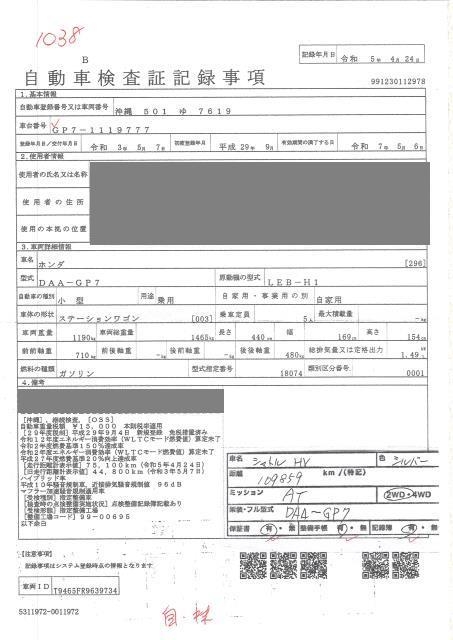 1038
B
記録年月日 令和 5年 4月 24日
自動車検査証記録事項
991230112978
1.基本情報
自動車登録番号又は車両番号 沖縄 501 ゆ 7619
車台番号 GP7-1119777
登録年月日/交付年月日 令和 3年 5月 7日 初度登録年月 平成 29年 9月 有効期間の満了する日 令和 7年 5月 6日
2.使用者情報
使用者の氏名又は名称
使用者の住所
使用の本拠の位置
3.車両詳細情報
車名 ホンダ [296]
型式 DAA-GP7 原動機の型式 LEB-H1
自動車の種別 小型 用途 乗用 自家用・事業用の別 自家用
車体の形状 ステーションワゴン [003] 乗車定員 5人 最大積載量 -kg
車両重量 1190kg 車両総重量 1465kg 長さ 440cm 幅 169cm 高さ 154cm
前前軸重 710kg 前後軸重 -kg 後前軸重 -kg 後後軸重 480kg 総排気量又は定格出力 1.49
燃料の種類 ガソリン 型式指定番号 18074 類別区分番号 0001
4.備考
[沖縄],継続検査,[OSS]
自動車重量税額 ¥15,000 本則税率適用
[29年度税制]平成29年9月4日 新規登録 免税措置済み
令和12年度エネルギー消費効率(WLTCモード燃費値)算定未了
令和2年度燃費基準150%達成車
令和2年度エネルギー消費効率(WLTCモード燃費値)算定未了
平成27年度燃費基準20%向上達成車
[走行距離計表示値]75,100km(令和5年4月24日)
[旧走行距離計表示値]44,800km(令和3年5月7日)
ハイブリッド車
平成10年騒音規制車,近接排気騒音規制値 96dB
マフラー加速騒音規制適用車
[受検種別]指定整備車
[検査時の点検整備実施状況]点検整備記録簿記載あり
[受検形態]指定整備工場
[整備工場コード]99-00695
以下余白
車名 シャトル HV 色 シルバー
距離 109859 km/(特記)
ミッション AT 2WD・4WD
車体・フル型式 DAA-GP7
保証書 有・無 整備手帳 有・無 記録簿 有・無
【注意事項】
記録事項はシステム登録時点の情報となります
車両ID T9465FR9639734
5311972-0011972